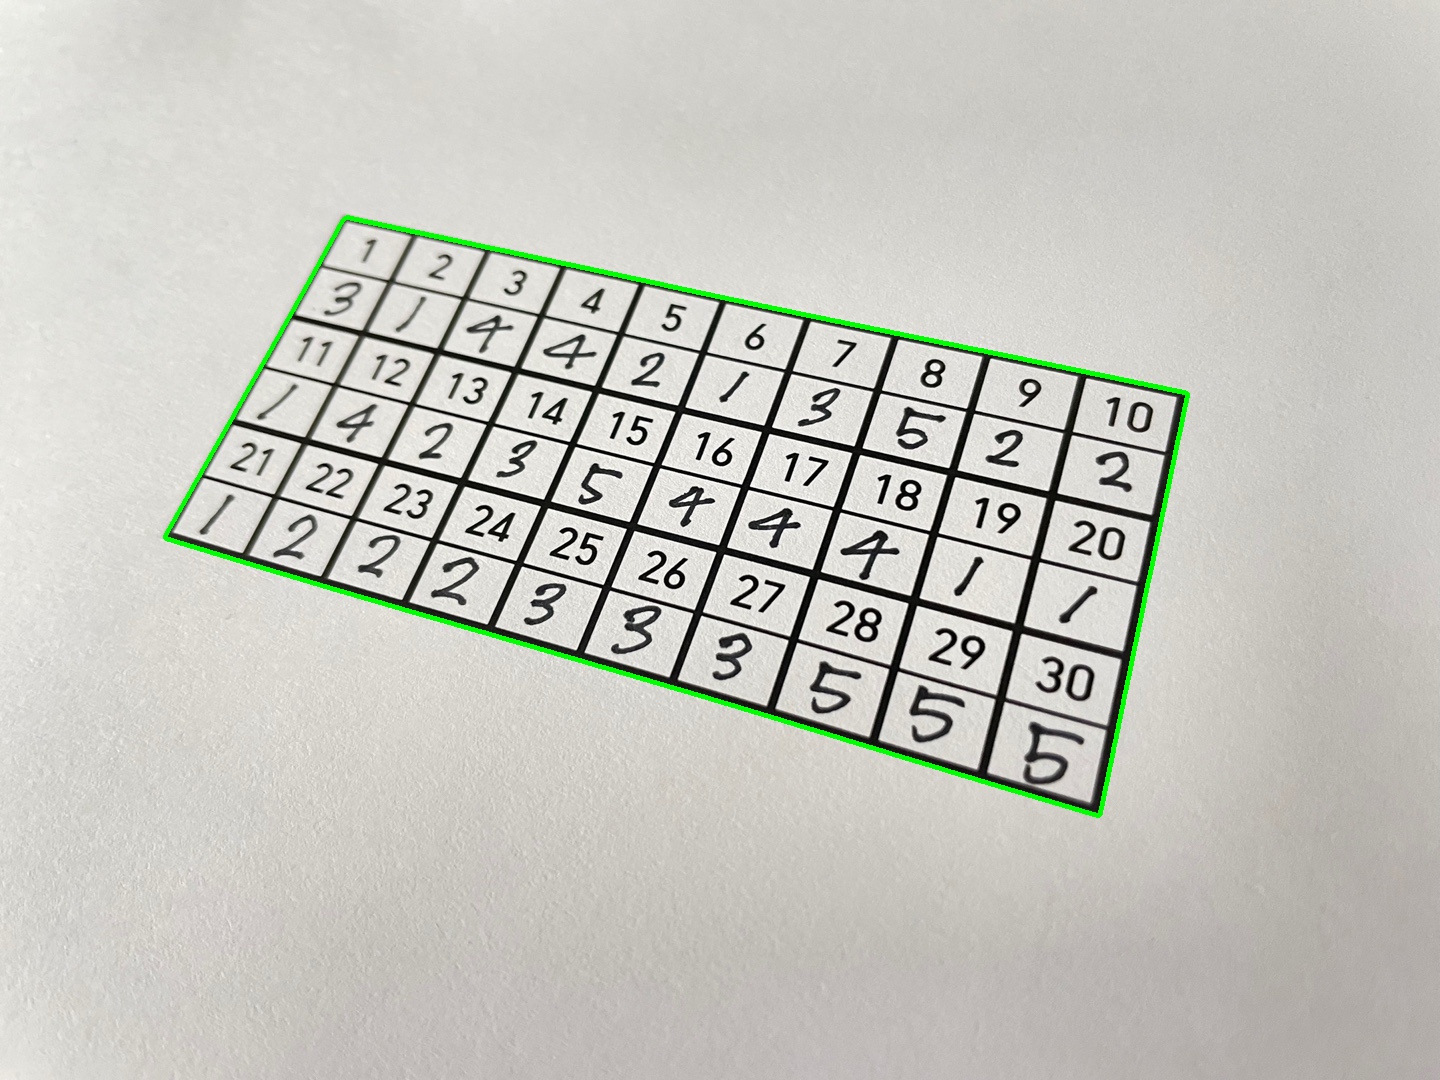 1 2 3 4 5 6 7 8 9 10
3 1 4 4 2 1 3 5 2 2
11 12 13 14 15 16 17 18 19 20
1 4 2 3 5 4 4 4 1 1
21 22 23 24 25 26 27 28 29 30
1 2 2 2 3 3 3 5 5 5